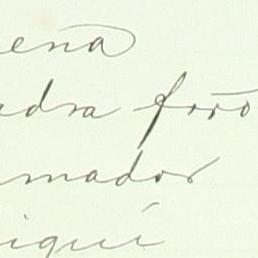 ena
adra foro
mador
iquí